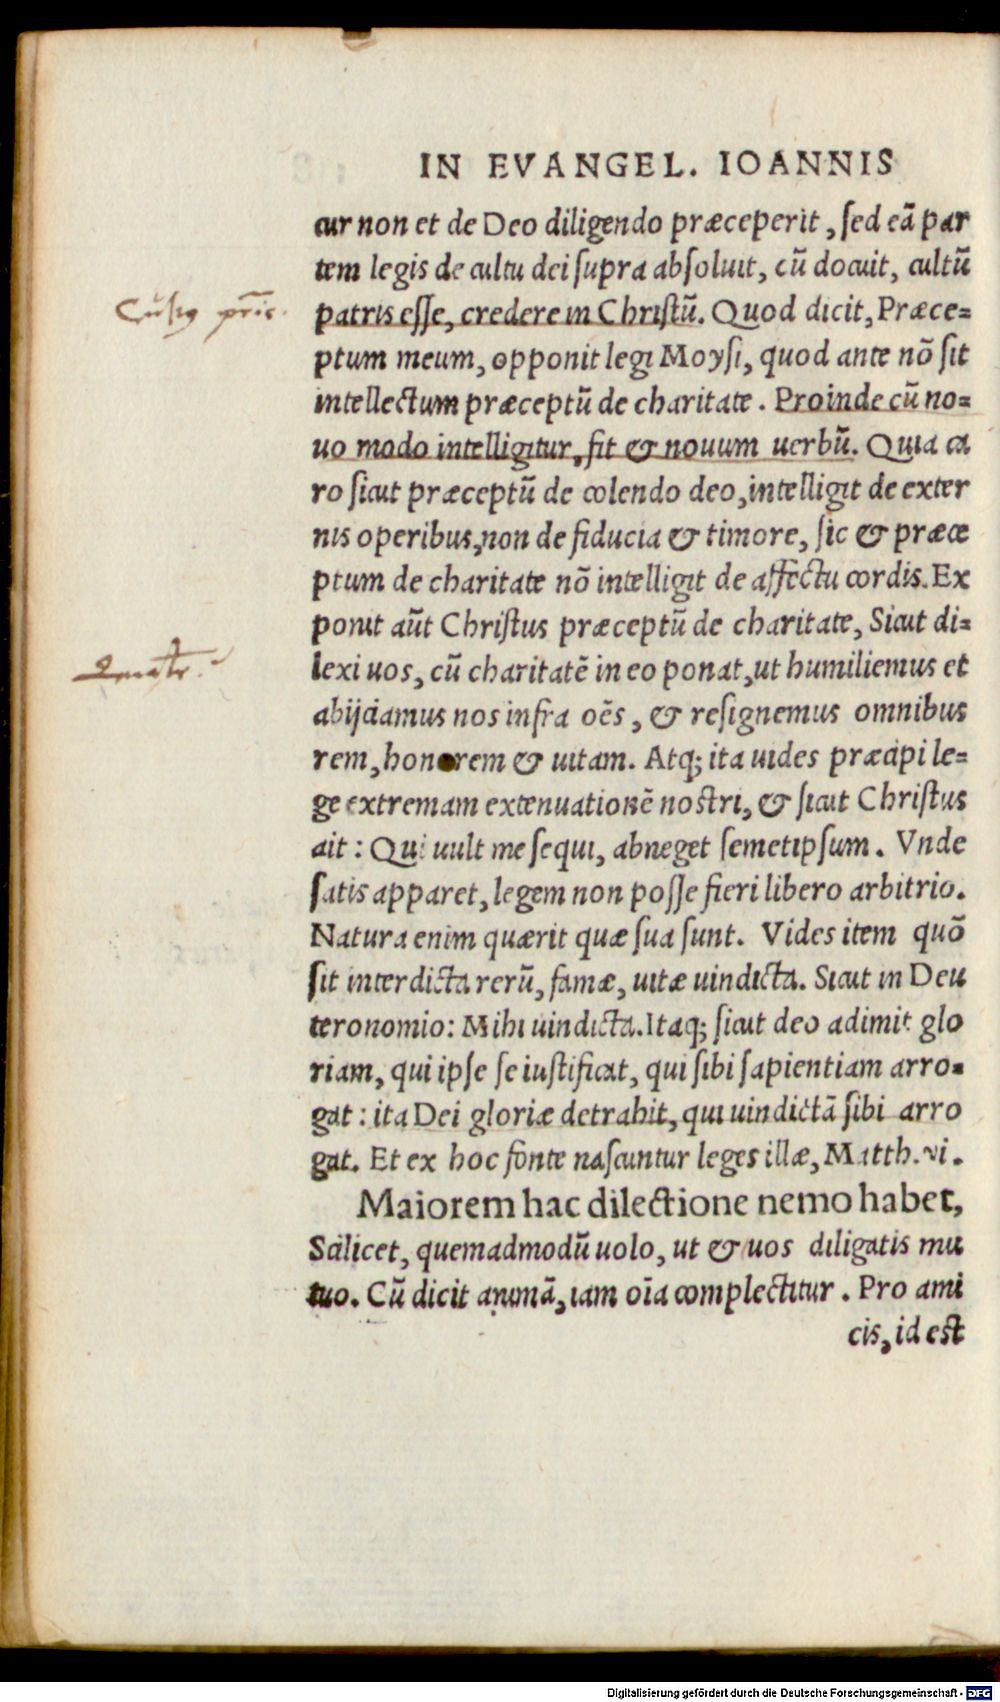 IN EVANGEL. IOANNIS
cur non et de Deo diligendo præceperit, ſed eã par
tem legis de cultu dei ſupra abſoluit, cũ docuit, cultũ
patris eſſe, credere in Chriſtũ. Quod dicit, Præce=
ptum meum, opponit legi Moyſi, quod ante nõ ſit
intellectum præceptũ de charitate. Proinde cũ no=
uo modo intelligitur, fit & nouum uerbũ. Quia ca
ro ſicut præceptũ de colendo deo, intelligit de exter
nis operibus, non de fiducia & timore, ſic & præce
ptum de charitate nõ intelligit de affectu cordis. Ex
ponit aũt Chriſtus præceptũ de charitate, Sicut di=
lexi uos, cũ charitatẽ in eo ponat, ut humiliemus et
abijciamus nos infra oẽs, & reſignemus omnibus
rem, honorem & uitam. Atq; ita uides præcipi le=
ge extremam extenuationẽ noſtri, & ſicut Chriſtus
ait: Qui uult me ſequi, abneget ſemetipſum. Vnde
ſatis apparet, legem non poſſe fieri libero arbitrio.
Natura enim quærit quæ ſua ſunt. Vides item quõ
ſit interdicta rerũ, famæ, uitæ uindicta. Sicut in Deu
teronomio: Mihi uindicta. Itaq; ſicut deo adimit glo
riam, qui ipſe ſe iuſtificat, qui ſibi ſapientiam arro=
gat: ita Dei gloriæ detrahit, qui uindictã ſibi arro
gat. Et ex hoc fonte naſcuntur leges illæ, Matth. vi.
Maiorem hac dilectione nemo habet,
Scilicet, quemadmodũ uolo, ut & uos diligatis mu
tuo. Cũ dicit animã, iam oĩa complectitur. Pro ami
cis, id eſt
Digitalisierung gefördert durch die Deutsche Forschungsgemeinschaft - DFG